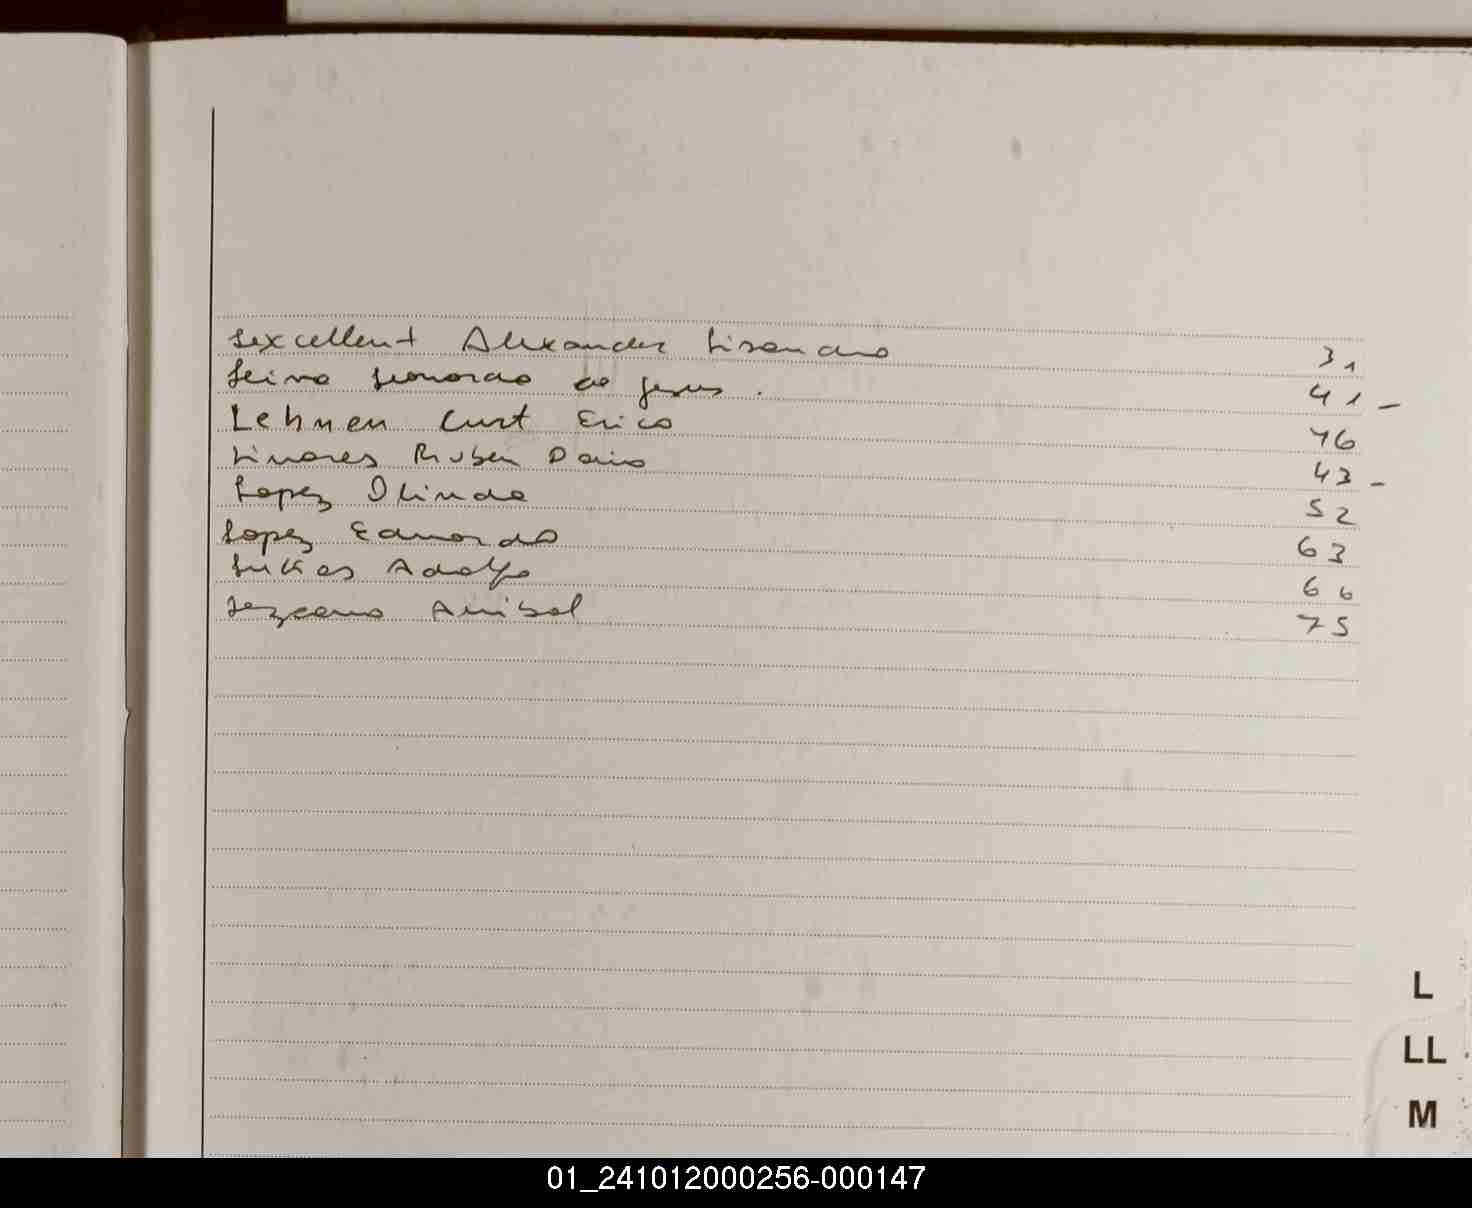 Lexcellent Alexander Lisandro 31
Leiva Leonardo de Jesus. 41 -
Lehnen Curt Erico 46
Linares Ruben Dario 43 -
Lopez Olinda 52
Lopez Eduardo 63
Lukas Adolfo 66
Lezcano Anibal 75
L
LL
M
01_241012000256-000147